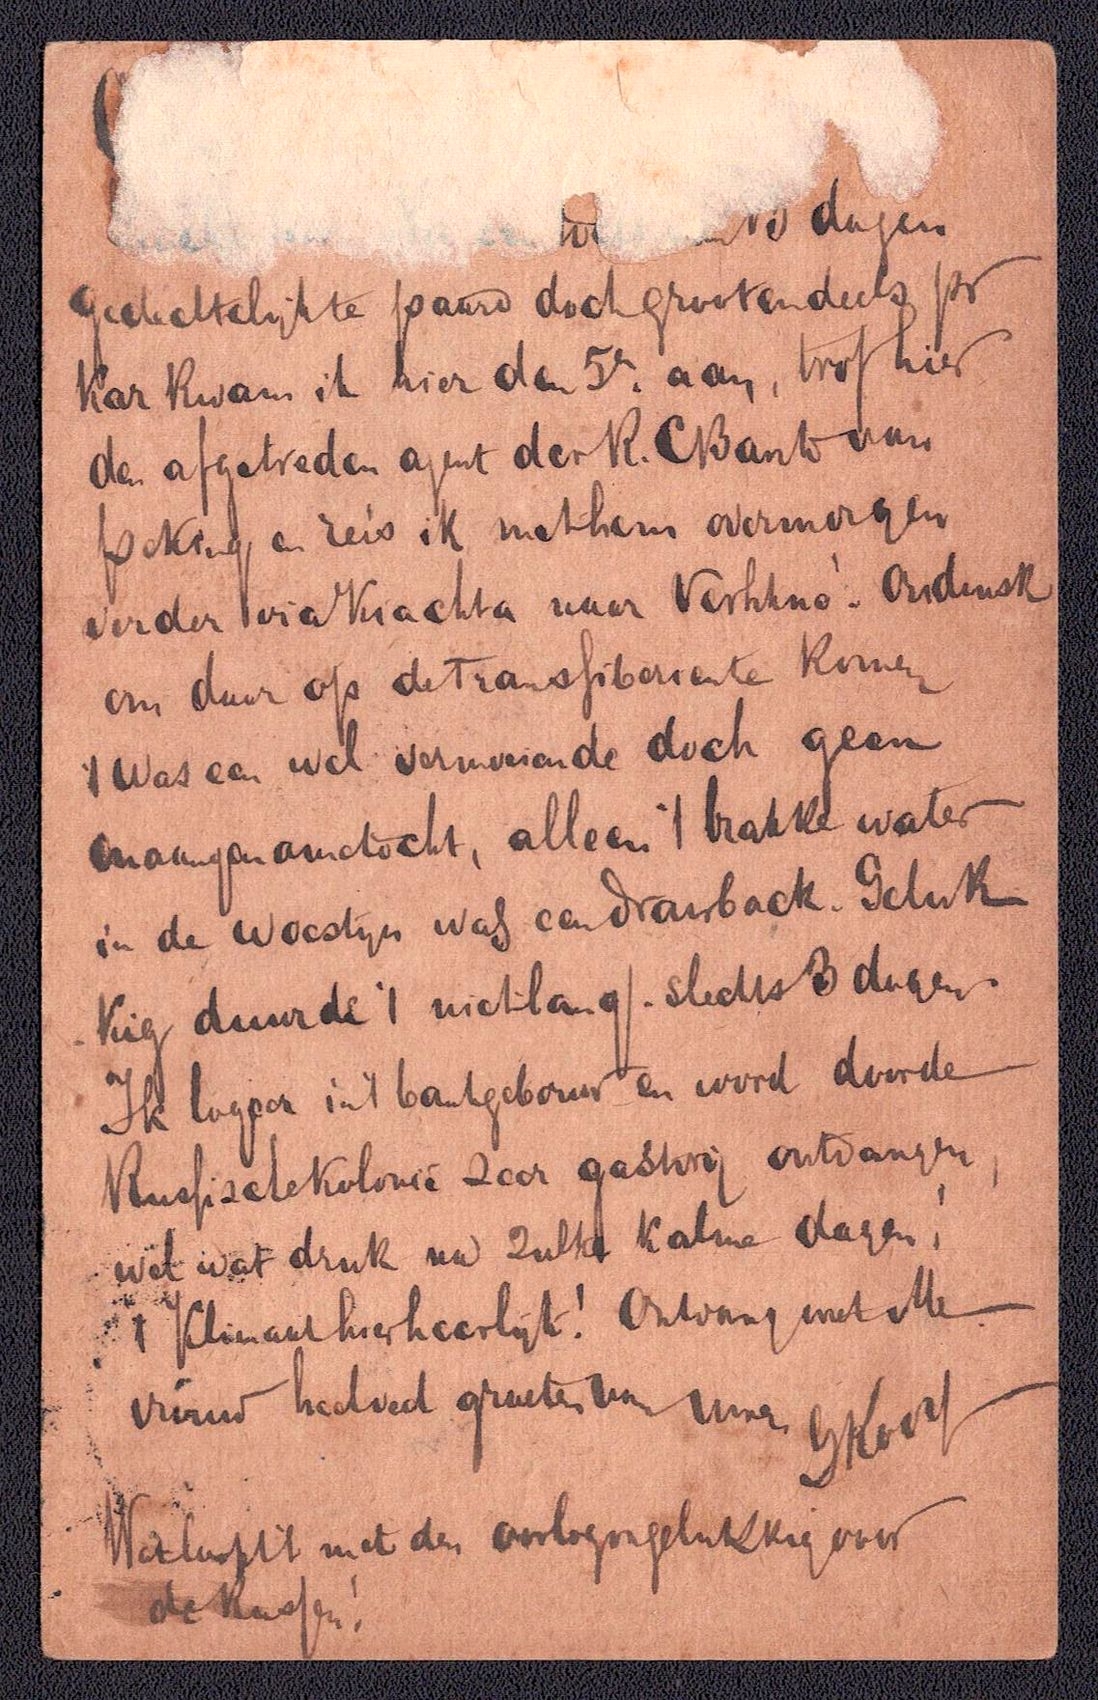 dagen
gedeeltelijk te paard doch grootendeels pr
kar kwam ik hier den 5e. aan, trof hier
den afgetreden agent der R. C Bank van
Peking en reis ik met hem overmorgen
verder via Kiachta naar Verkhné. Oudinsk
om daar op de Transsiberiente komen
't Was een wel vermoeiende doch geen
onaangenametocht, alleen 't brakke water
in de woestijn was een drawback. Geluk
kig duurde 't niet lang. slechts 3 dagen.
Ik logeer in 't bankgebouw en word door de
Russische Kolonie zeer gastvrij ontvangen,
wel wat druk na zulke kalme dagen!
't Klimaat hier heerlijk! Ontvang met Me
vrouw heelveel groeten van Uwen
Wat loopt 't met den oorlog ongelukkig voor
de Russen!